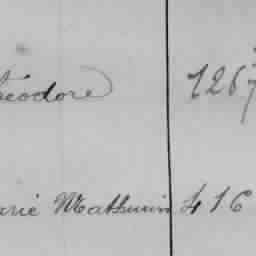 eodore 7267
arie Mathurin 416